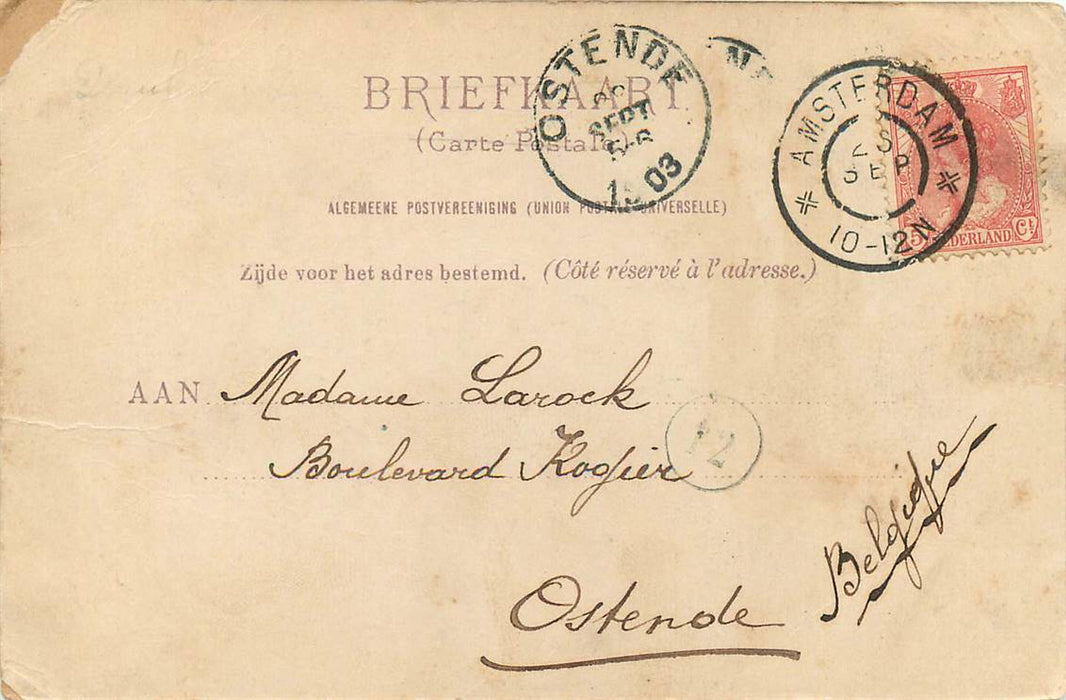 BRIEFKAART
(Carte Postale)
ALGEMEENE POSTVEREENIGING (UNION POSTALE UNIVERSELLE)
Zijde voor het adres bestemd. (Côté réservé à l'adresse.)
OSTENDE
SEPT
5-6
1903
AMSTERDAM
SEP
10-12N
5 NEDERLAND Ct
AAN Madame Larock
Boulevard Rogier
12
Ostende
Belgique